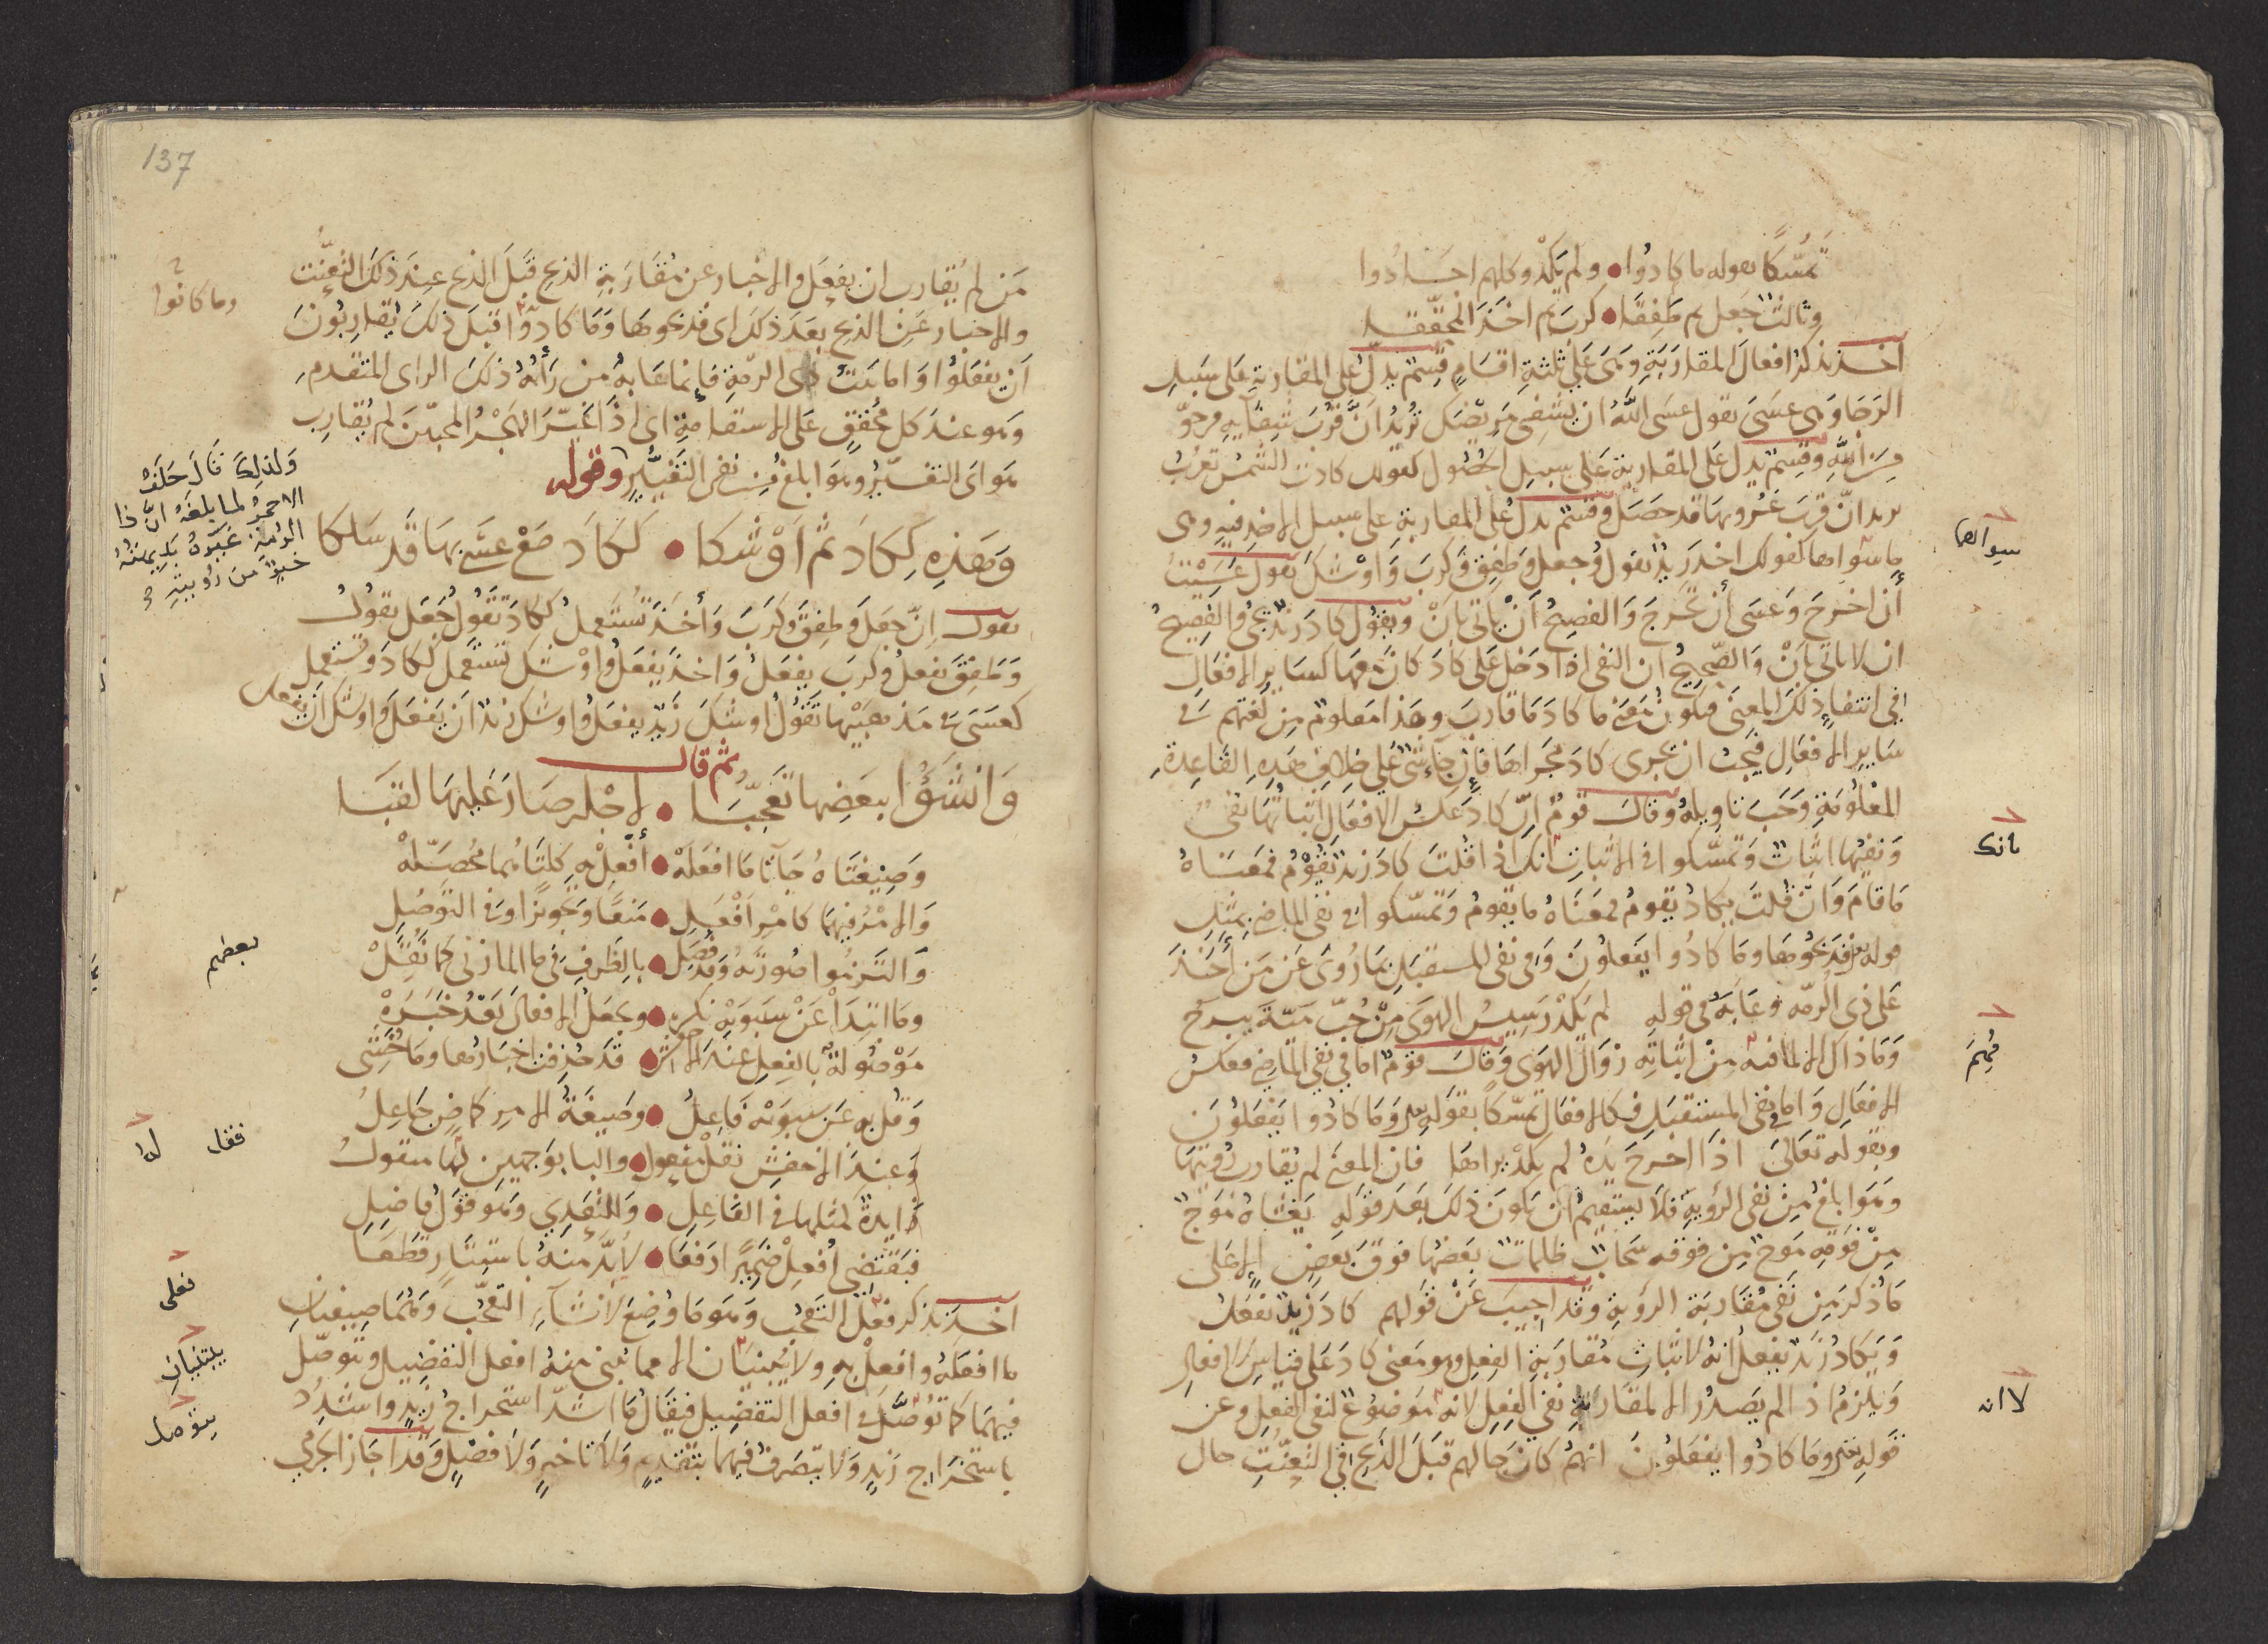 تمسكا بقوله ما كادوا ولم يكد وكلهم اجادوا
وثالث جعل ثم طفقا كرب ثم اخذ المحققه
اخذ يذكر افعال المقاربة وهى على ثلثة اقسام قسم يدل على المقاربة على سبيل
الرجا وهى عسى تقول عسى الله ان يشفى مريضك تريد ان قرب شفايه مرجو
من الله وقسم يدل على المقاربة على سبيل الحصول كقولك كادت الشمس تغرب
يريد ان قرب غروبها قد حصل وقسم يدل على المقاربة على سبيل الاخذ فيه وهى
ما سواهما كقولك اخذ زيد يقول وجعل وطفق وكرب واوشك تقول عسيت
سواهما
أن اخرج وعسى أن تخرج والفصيح أن ياتى بان ويقول كاد زيد يجئ والفصيح
ان لا ياتى بان والصحيح ان النفى اذا دخل على كاد كان فيها كساير الافعال
فى انتفاء ذلك المعنى فيكون معنى ما كاد ما قارب وهذا معلوم من لغتهم فى
ساير الافعال فيجب ان تجرى كاد مجراها فان جاء شئ على خلاف هذه القاعدة
المعلومة وجب تاويله وقال قوم ان كاد عكس الافعال اثباتها نفى
ونفيها اثبات وتمسكوا فى الاثبات انك اذا قلت كاد زيد يقوم فمعناه
بانك
ما قام وان قلت يكاد يقوم فمعناه ما يقوم وتمسكوا فى نفى الماضى بمثل
قوله تع فذبحوها وما كادوا يفعلون وفى نفى المستقبل بما روى عن من أخذ
على ذى الرمه وعابه فى قوله لم يكد رسيس الهوى من حب مية يبرح
وما ذاك الا لما فيه من اثباته زوال الهوى وقال قوم اما فى نفى الماضى فعكس
فهم
الافعال واما فى نفى المستقبل فكالافعال تمسكا بقوله تع وما كادوا يفعلون
وبقوله تعالى اذا اخرج يده لم يكد يراها فان المعنى لم يقارب رؤيتها
وهو ابلغ من نفى الرؤية فلا يستقيم أن يكون ذلك بعد قوله يغشاه موج
من فوقه موج من فوقه سحاب ظلمات بعضها فوق بعض الا على
ما ذكر من نفى مقاربة الرؤية وقد اجيب عن قولهم كاد زيد يفعل
ويكاد زيد يفعل انه لاثبات مقاربة الفعل وهو معنى كاد على قياس الافعال
ويلزم اذ الم يصدر الا لمقاربة نفى الفعل لانه موضوع لنفى الفعل وعن
لا انه
قوله تع وما كادوا يفعلون انهم كان حالهم قبل الذبح فى التعنت حال
137
من لم يقارب ان يفعل والاخبار عن مقاربة الذبح قبل الذبح عند ذلك التعنت
والاخبار عن الذبح بعد ذلك اى فذبحوها وما كادوا قبل ذلك يقاربون
وما كانوا
أن يفعلوا واما بيت ذى الرمة فإنما عابه من رأيه ذلك الراى المتقدم
وهو عند كل محقق على الاستقامة اى اذا غير الهجر المحبين لم يقارب
هواى التغير وهو ابلغ من نفى التغير وقوله
ولذلك قال خلف
الاحمر لما بلغه ان ذا
الرمة غيره بديهته
خير من رؤيته
وهذه لكاد ثم اوشكا لكاد مع عسى بها قد سلكا
يقول إن جعل وطفق وكرب وأخذ تستعمل لكاد تقول جعل يقول
وطفق يفعل وكرب يفعل واخذ يفعل واوشك تستعمل لكاد وتستعمل
كعسى فى مذهبيها تقول اوشك زيد يفعل واوشك زيد ان يفعل واوشك أن يفعل
ثم قال
وانشؤا ببعضها تعجبا لاجله صار عليها لقبا
وصيغتاه جاءتا ما افعله أفعل به كلتاهما محصله
والامر فيهما كامر افعل منعا وتجويزا وفى التوصل
والتزموا صورته وفصل بالظرف فى ما المازنى كما نقل
بعضهم
وما ابتدأ عن سيبويه نكره وتجعل الافعال بعد خبره
موضولة بالفعل عند الاخفش قد حذفت اخبارها وما خشى
وقل به عن سيبويه فاعل وصيغة الامر كماض جاعل
فقال
لها
وعند الاخفش نقل مفعول والبا بوجهين لها منقول
زايدة لمثلها فى الفاعل وللتعدي وهو قول فاضل
فيقتضى أفعل ضميرا ارفعا لا بد منه باستتار قطعا
اخذ يذكر فعل التعجب وهو ما وضع لانشاء التعجب وهما صيغتان
فعلى
ما افعله وافعل به ولا يبنيان الا مما يبنى منه افعل التفضيل وتوصل
يبتنيان
فيهما كما توصل فى افعل التفضيل فيقال ما اشد استخراج زيد واشدد
يتوصل
باستخراج زيد ولا يتصرف فيهما بتقديم ولا تاخير ولا فصل وقد اجاز الجرمي